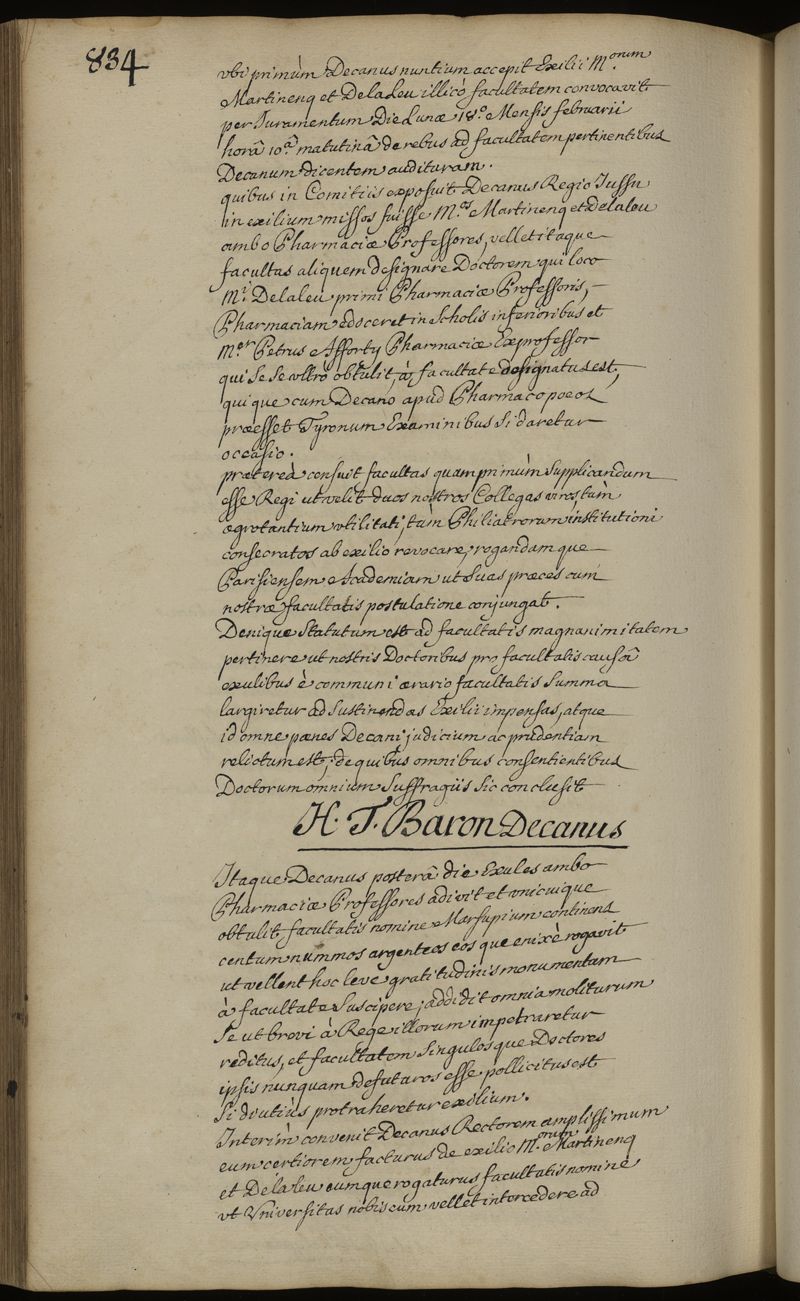 834
ubi primùm Decanus nuntium accepit Exilii M.orum
Martinenq et Delaleu illicò facultatem convocavit
per Juramentum Die Lunæ 18.º Mensis februarii
horâ 10.ª matutinâ de rebus ad facultatem pertinentibus
Decanum dicentem audituram.
quibus in Comitiis exposuit Decanus Regio Jussu
in exilium missos fuisse M.os Martinenq et Delaleu
ambo Pharmaciæ Professores, vellet itaque
facultas aliquem designare Doctorem qui loco
M.i Delaleu primi Pharmaciæ Professoris,
Pharmaciam edoceret in Scholis inferioribus et
M.er Petrus Afforty Pharmaciæ Exprofessor
qui se se ultrò obtulit, à facultate designatus est,
quique cum Decano apud Pharmacopoeos
præesset Tyronum Examinibus si daretur
occasio.
prætereà censuit facultas quamprimùm supplicandum
esse Regi ut velit duos nostros Collegas viros tùm
ægrotantium utilitati, tùm Philiatrorum institutioni
consecratos ab exilio revocare, rogandamque
Parisiensem Academiam ut suas præces cum
nostræ facultatis postulatione conjungat.
Denique Statutum est ad facultatis magnanimitatem
pertinere ut nostris Doctoribus pro facultatis causâ
exulibus è communi ærario facultatis Summa
largiretur ad sustinendas Exilii impensas, atque
id omne pænes Decani judicium ac prudentiam
relictum est; de quibus omnibus consentientibus
Doctorum omnium Suffragiis sic conclusit
H. T. Baron Decanus
Itaque Decanus posterâ die Exules ambo
Pharmaciæ Professores adivit et unicuique
obtulit facultatis nomine Marsupium continens
centum nummos argenteos eosque enixè rogavit
ut vellent hoc leve gratitudinis monumentum
à facultate Suscipere; addidit omnia moliturum
Se ut brevi à Rege illorum impetraretur
reditus, et facultatem Singulosque Doctores
ipsis nunquam defuturos esse pollicitus est
Si diutiùs protraheretur exilium.
Interim convenit Decanus Rectorem amplissimum
eum certiorem facturus de exilio M.orum Martinenq
et Delaleu eumque rogaturus facultatis nomine
ut Universitas nobiscum vellet intercedere ad